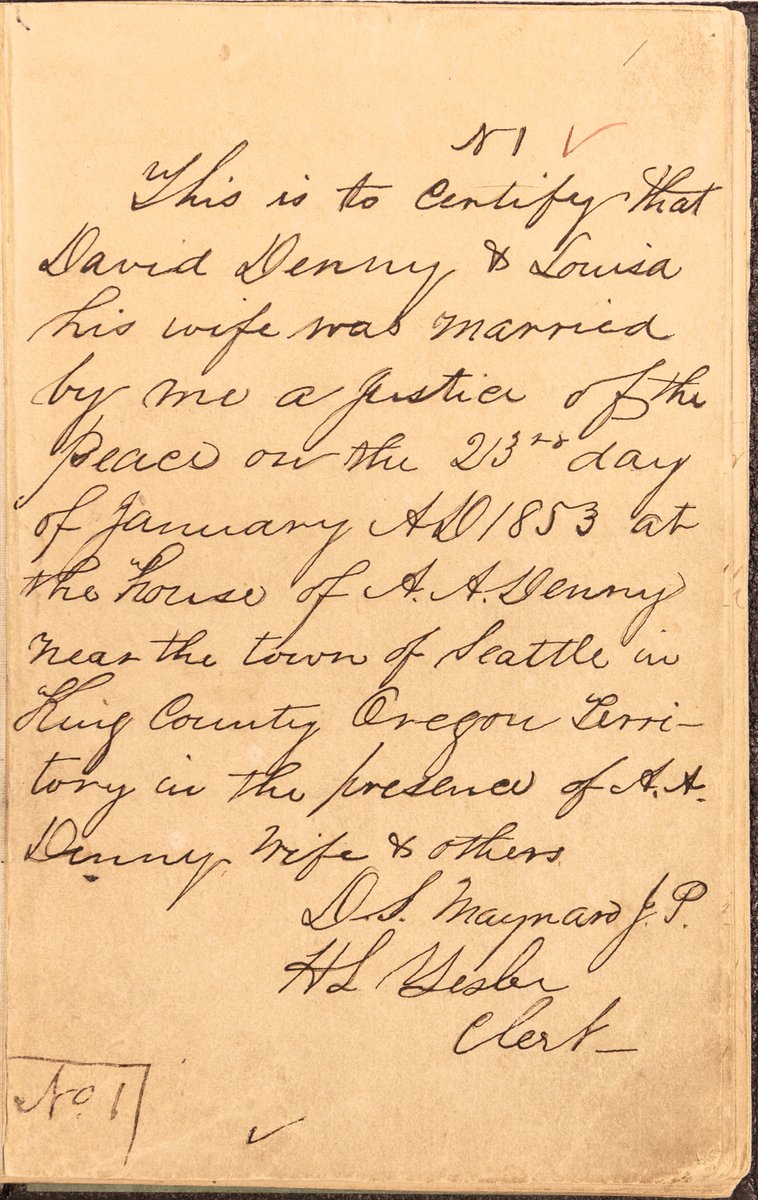 N 1 ✓
This is to certify that
David Denny & Louisa
his wife was married
by me a Justice of the
Peace on the 23rd day
of January AD 1853 at
the house of A. A. Denny
near the town of Seattle in
King County Oregon Terri-
tory in the presence of A. A.
Denny, wife & others
D. S. Maynard J. P.
H L Yesler
Clerk
No. 1
✓